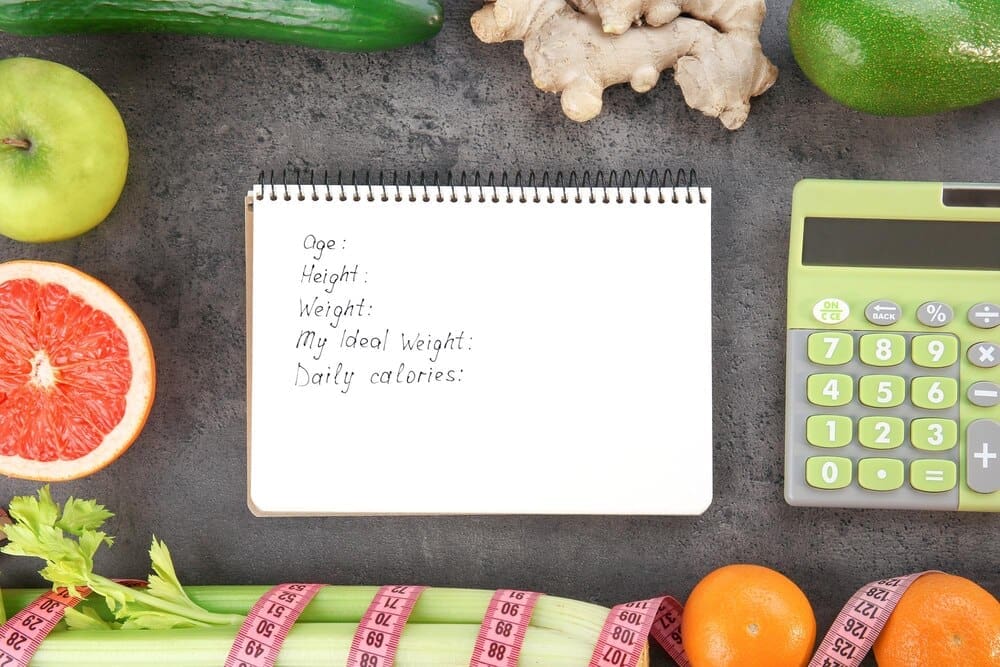 Age:
Height:
Weight:
My Ideal Weight:
Daily calories:
ON
C CE
BACK
%
÷
7
8
9
×
4
5
6
−
1
2
3
+
0
.
=
28
29
30
49
50
51
53
68
69
70
71
72
88
89
90
91
107
108
109
125
126
127
128
129